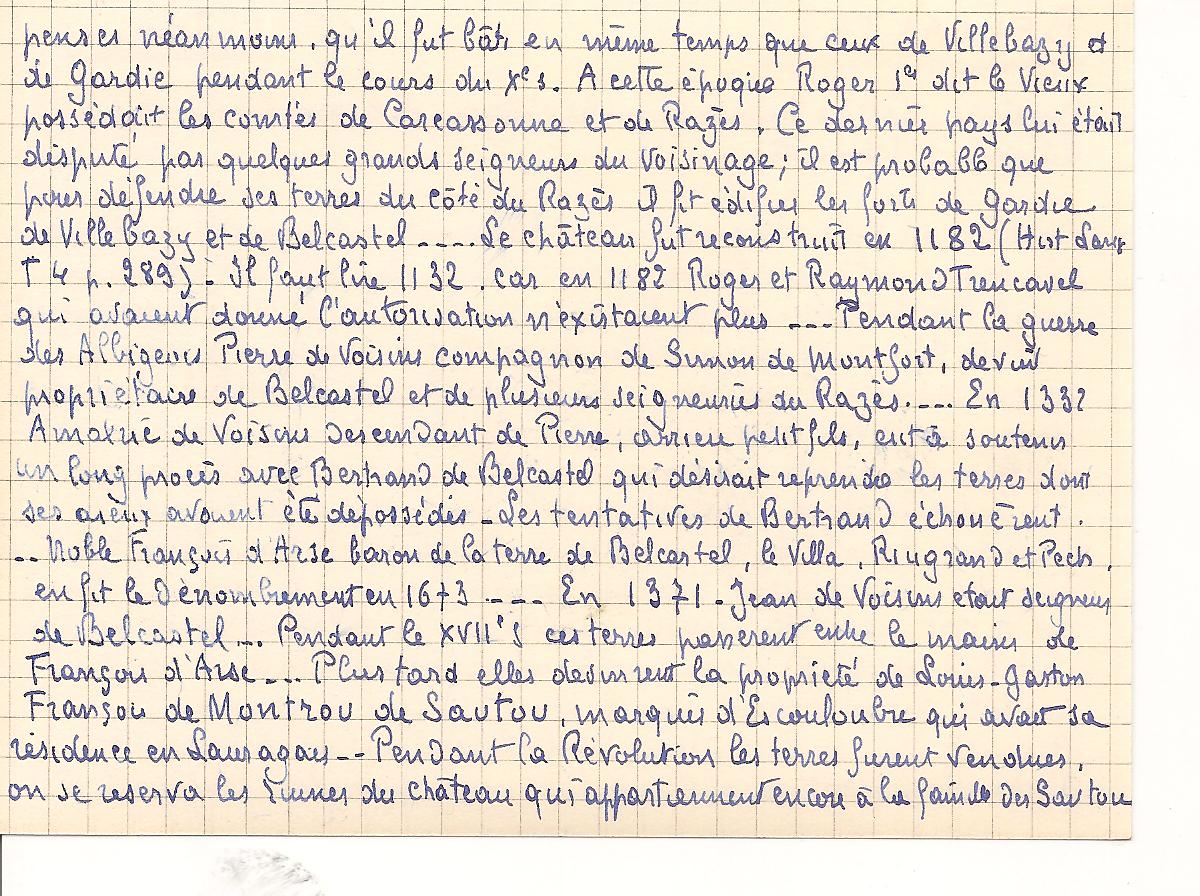 penser néanmoins, qu'il fut bâti en même temps que ceux de Villebazy et
de Gardie pendant le cours du Xe s. A cette époque Roger 1er dit le Vieux
possédait les comtés de Carcassonne et de Razès. Ce dernier pays lui était
disputé par quelques grands seigneurs du voisinage; il est probable que
pour défendre ses terres du côté du Razès il fit édifier les forts de Gardie
de Villebazy et de Belcastel ----. Le château fut reconstruit en 1182 (Hist Lang
T 4 p. 289) - Il faut lire 1132. car en 1182 Roger et Raymond Trencavel
qui avaient donné l'autorisation n'existaient plus --- Pendant la guerre
des Albigeois Pierre de Voisins compagnon de Simon de Montfort, devint
propriétaire de Belcastel et de plusieurs seigneuries du Razès. --- En 1332
Amalric de Voisins descendant de Pierre, arrière petit fils, eut à soutenir
un long procès avec Bertrand de Belcastel qui désirait reprendre les terres dont
ses aïeux avaient été dépossédés - Les tentatives de Bertrand échouèrent.
-- Noble François d'Arse baron de la terre de Belcastel, le Villa, Riugrand et Pech,
en fit le dénombrement en 1673 ---- En 1371 - Jean de Voisins était seigneur
de Belcastel --. Pendant le XVII's ces terres passèrent entre le mains de
François d'Arse --- Plus tard elles devinrent la propriété de Louis-Gaston
François de Montrou de Sautou, marquis d'Escouloubre qui avait sa
résidence en Lauragais -- Pendant la Révolution les terres furent vendues,
on se réserva les ruines du château qui appartiennent encore à la famille des Sautou